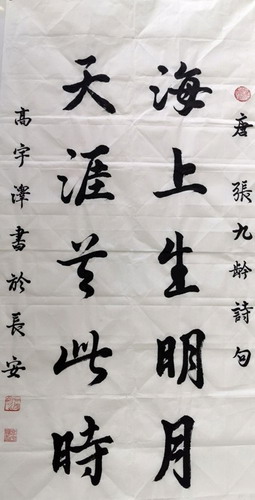 唐張九齡詩句
海上生明月
天涯共此時
高宇澤書於長安